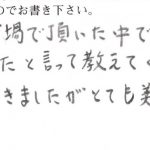 のでお書き下さい。
場で頂いた中で
たと言って教えて
きましたがとても美